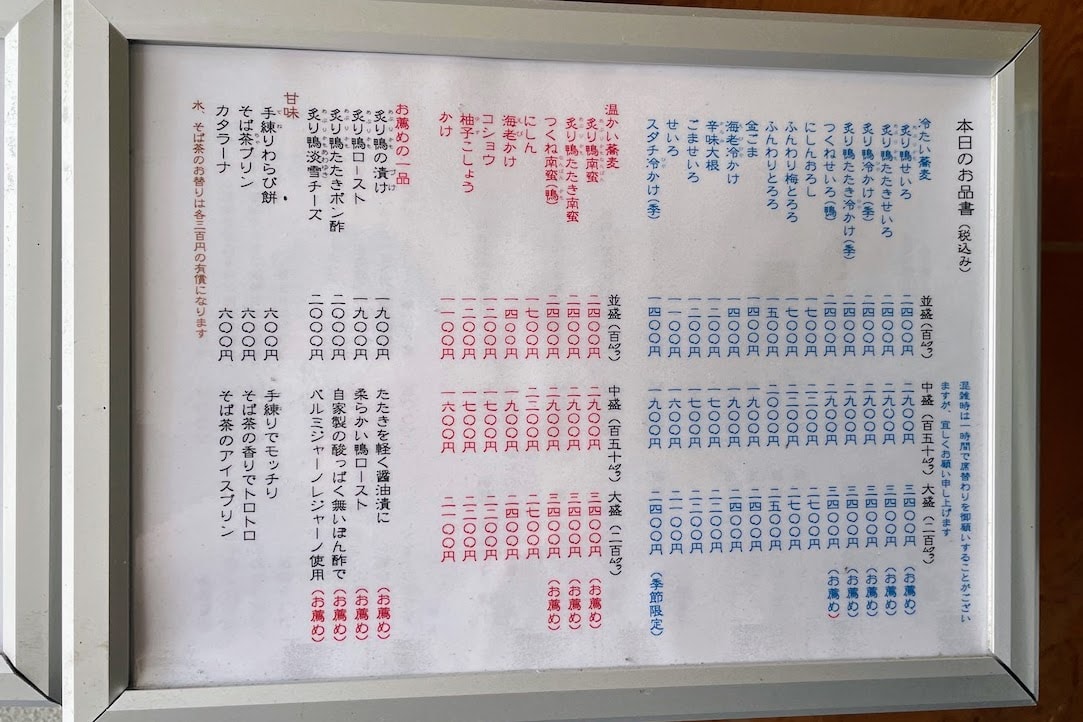 本日のお品書(税込み)
混雑時は一時間で席替わりを御願いすることがござい
ますが、宜しくお願い申し上げます
冷たい蕎麦 並盛(百㌘) 中盛(百五十㌘) 大盛(二百㌘)
炙り鴨せいろ 二四〇〇円 二九〇〇円 三四〇〇円(お薦め)
炙り鴨たたきせいろ 二四〇〇円 二九〇〇円 三四〇〇円(お薦め)
炙り鴨冷かけ(季) 二四〇〇円 二九〇〇円 三四〇〇円(お薦め)
炙り鴨たたき冷かけ(季) 二四〇〇円 二九〇〇円 三四〇〇円(お薦め)
つくねせいろ(鴨) 二四〇〇円 二九〇〇円 三四〇〇円(お薦め)
にしんおろし 一七〇〇円 二二〇〇円 二七〇〇円
ふんわり梅とろろ 一七〇〇円 二二〇〇円 二七〇〇円
ふんわりとろろ 一五〇〇円 二〇〇〇円 二五〇〇円
金ごま 一四〇〇円 一九〇〇円 二四〇〇円
海老冷かけ 一四〇〇円 一九〇〇円 二四〇〇円
辛味大根 一二〇〇円 一七〇〇円 二二〇〇円
ごませいろ 一二〇〇円 一七〇〇円 二二〇〇円
せいろ 一一〇〇円 一六〇〇円 二一〇〇円
スダチ冷かけ(季) 一四〇〇円 一九〇〇円 二四〇〇円(季節限定)
温かい蕎麦 並盛(百㌘) 中盛(百五十㌘) 大盛(二百㌘)
炙り鴨南蛮 二四〇〇円 二九〇〇円 三四〇〇円(お薦め)
炙り鴨たたき南蛮 二四〇〇円 二九〇〇円 三四〇〇円(お薦め)
つくね南蛮(鴨) 二四〇〇円 二九〇〇円 三四〇〇円(お薦め)
にしん 一七〇〇円 二二〇〇円 二七〇〇円
海老かけ 一四〇〇円 一九〇〇円 二四〇〇円
コショウ 一二〇〇円 一七〇〇円 二二〇〇円
柚子こしょう 一二〇〇円 一七〇〇円 二二〇〇円
かけ 一一〇〇円 一六〇〇円 二一〇〇円
お薦めの一品
炙り鴨の漬け 一九〇〇円 たたきを軽く醤油漬に(お薦め)
炙り鴨ロースト 一九〇〇円 柔らかい鴨ロースト(お薦め)
炙り鴨たたきポン酢 二〇〇〇円 自家製の酸っぱく無いぽん酢で(お薦め)
炙り鴨淡雪チーズ 二〇〇〇円 パルミジャーノレジャーノ使用(お薦め)
甘味
手練りわらび餅 六〇〇円 手練りでモッチリ
そば茶プリン 六〇〇円 そば茶の香りでトロトロ
カタラーナ 六〇〇円 そば茶のアイスプリン
水、そば茶のお替りは各三百円の有償になります